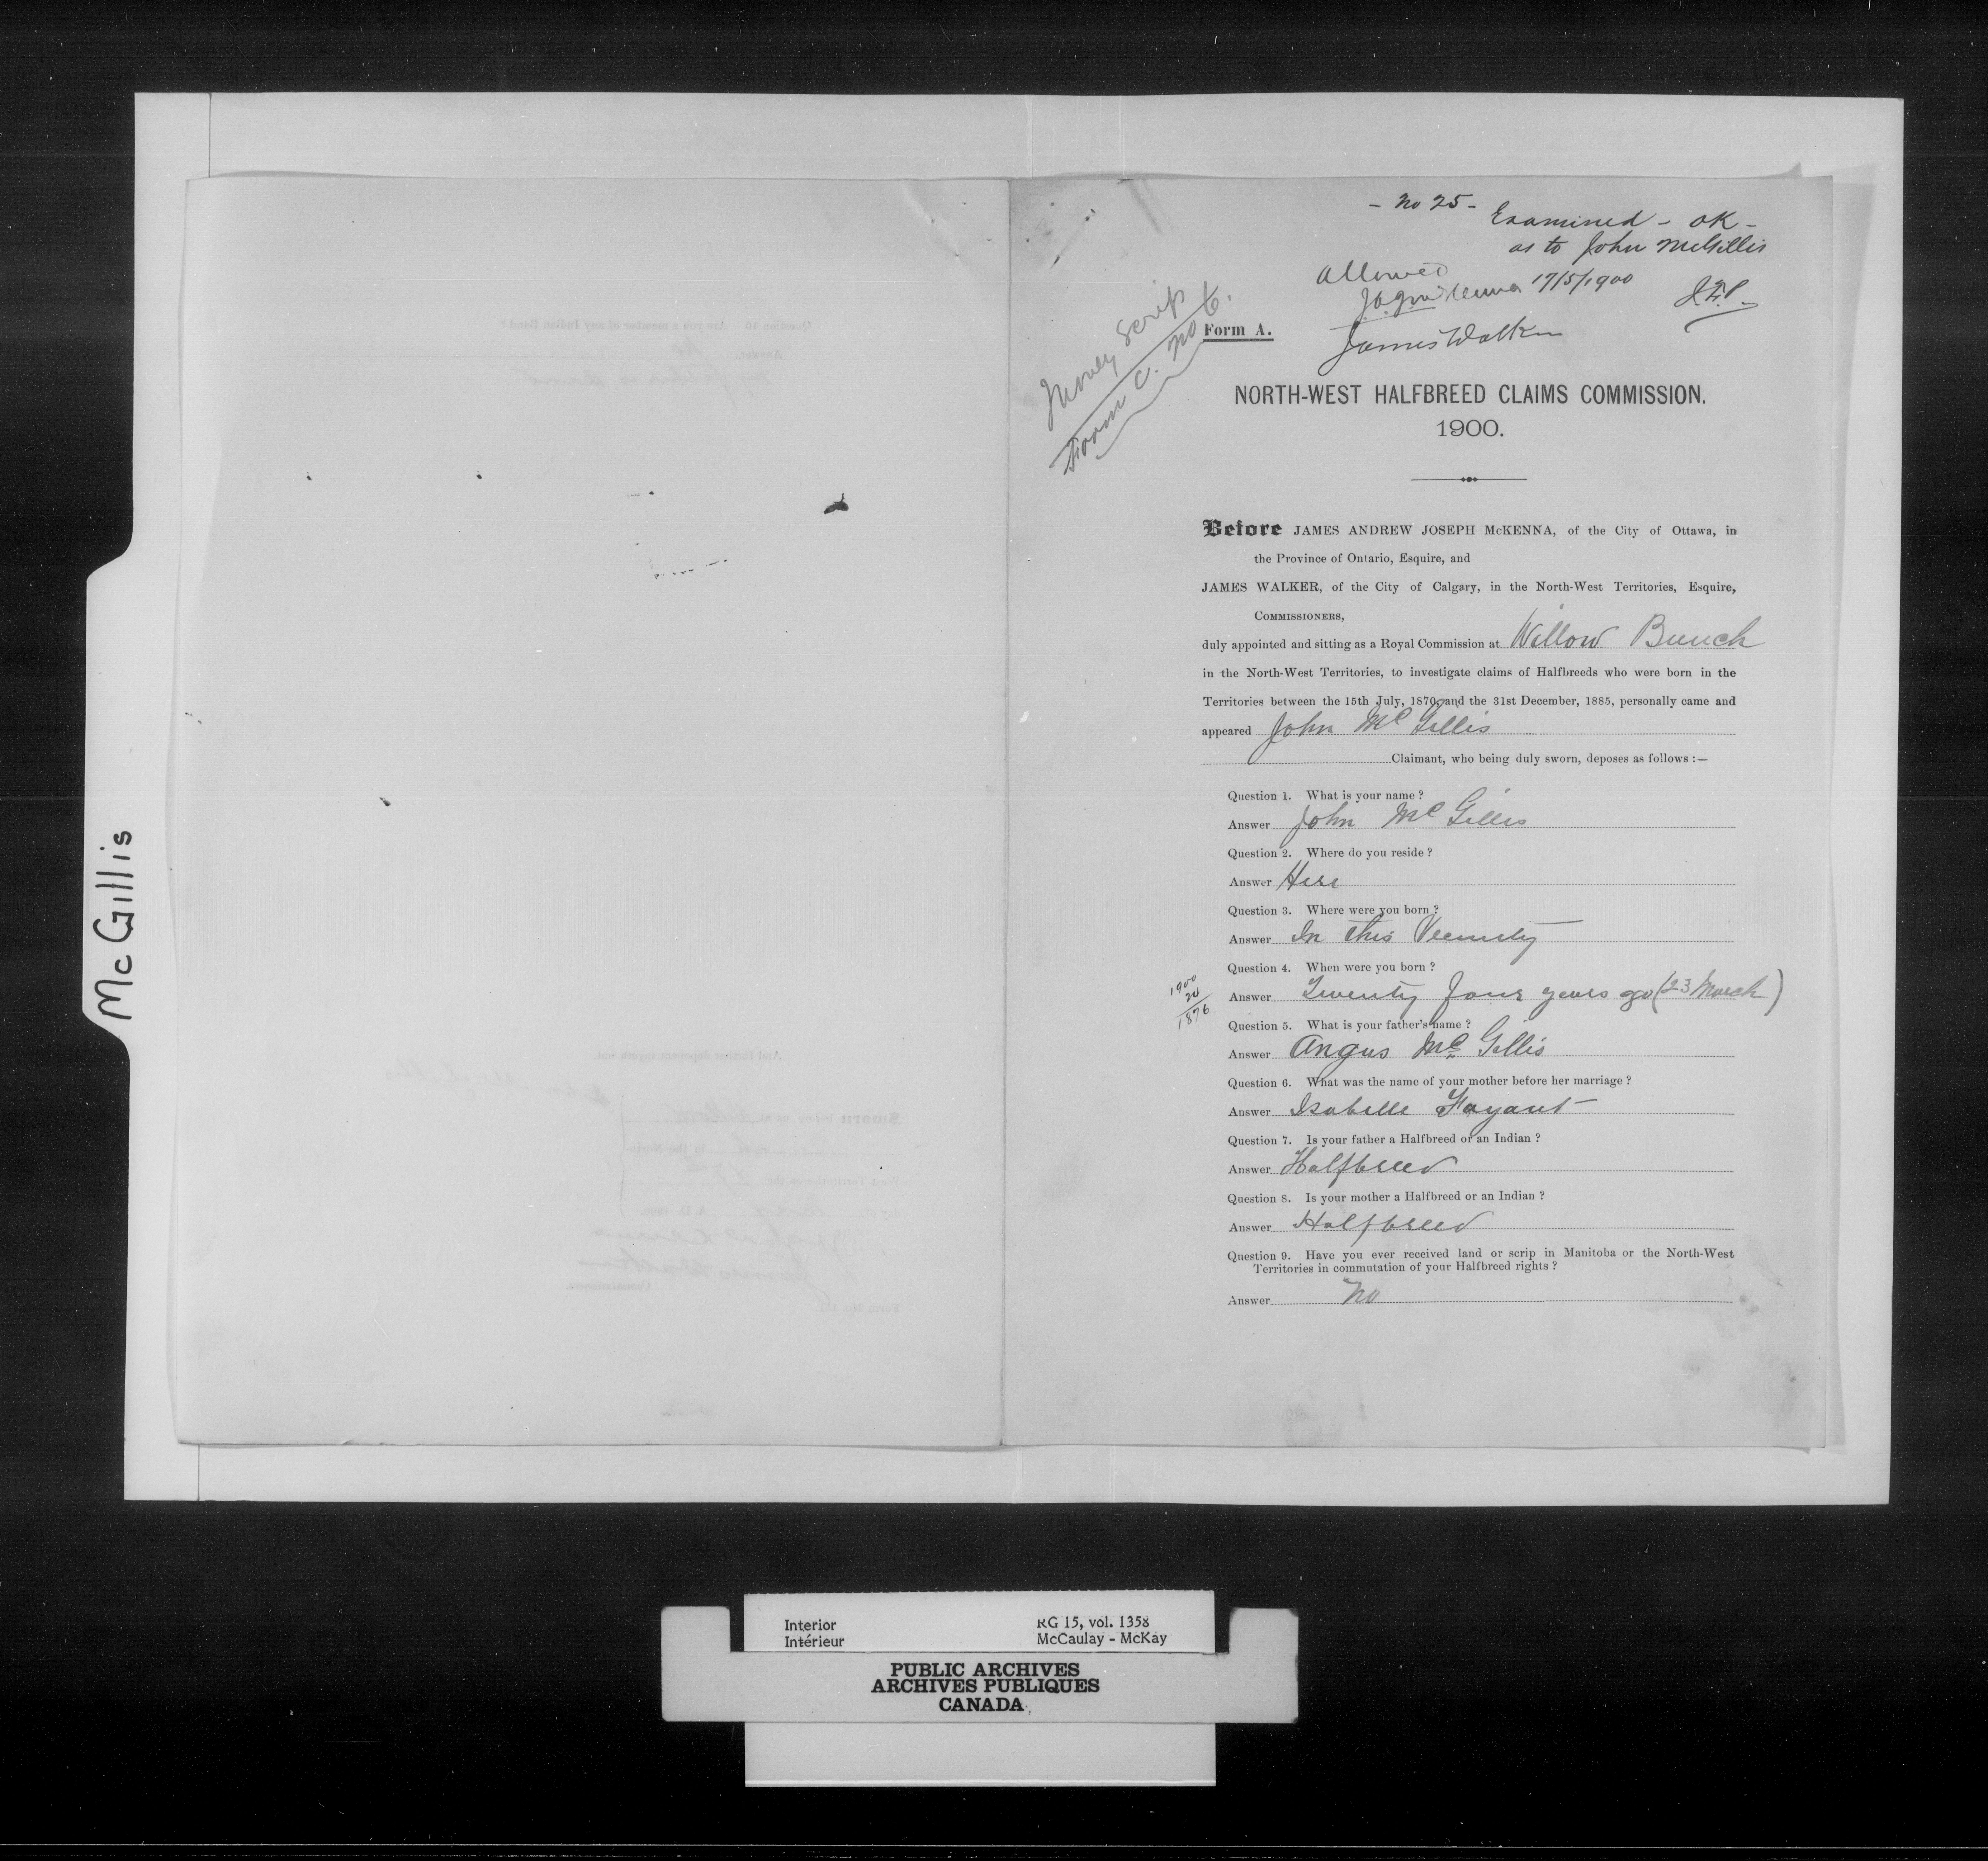 McGillis
- No 25 -
Examined - OK -
as to John McGillis
Allowed
J.A.J. McKenna 17/5/1900
James Walker
Money Scrip
Form C. No 6.
Form A.
NORTH-WEST HALFBREED CLAIMS COMMISSION.
1900.
Before JAMES ANDREW JOSEPH McKENNA, of the City of Ottawa, in
the Province of Ontario, Esquire, and
JAMES WALKER, of the City of Calgary, in the North-West Territories, Esquire,
COMMISSIONERS,
duly appointed and sitting as a Royal Commission at Willow Bunch
in the North-West Territories, to investigate claims of Halfbreeds who were born in the
Territories between the 15th July, 1870, and the 31st December, 1885, personally came and
appeared John McGillis
Claimant, who being duly sworn, deposes as follows :—
Question 1. What is your name ?
Answer John McGillis
Question 2. Where do you reside ?
Answer Here
Question 3. Where were you born ?
Answer In this Vicinity
Question 4. When were you born ?
1900
24
1876
Answer Twenty four years ago (23 March)
Question 5. What is your father's name ?
Answer Angus McGillis
Question 6. What was the name of your mother before her marriage ?
Answer Isabelle Fayant
Question 7. Is your father a Halfbreed or an Indian ?
Answer Halfbreed
Question 8. Is your mother a Halfbreed or an Indian ?
Answer Halfbreed
Question 9. Have you ever received land or scrip in Manitoba or the North-West
Territories in commutation of your Halfbreed rights ?
Answer No
Interior
Intérieur
RG 15, vol. 1358
McCaulay - McKay
PUBLIC ARCHIVES
ARCHIVES PUBLIQUES
CANADA